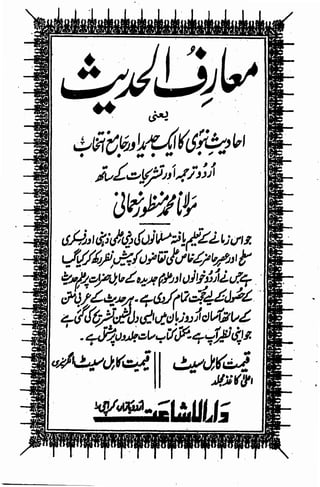 معارفُ الحدیث
یعنی
احادیثِ نبویؐ کا ایک جدید اور جامع انتخاب
اردو ترجمہ اور تشریحات کے ساتھ
مولانا محمد منظور نعمانی
جو اس زمانے کے تعلیم یافتہ مسلمانوں کی دینی، علمی، ذہنی اور فکری
سطح اور عصر حاضر کے خاص علمی تقاضوں کو پیش نظر رکھ کر کیا گیا
ہے جس نے اردو خوانوں اور علوم جدیدہ کے حامل حضرات پر علم حدیث
کے حصول کے لیے حجت تمام کر دی ہے۔ ہر حدیث کے عربی متن
کے ساتھ آسان اردو زبان میں ایسی دل نشین تشریح کی گئی ہے
جو اپنی نظیر آپ ہے۔ یہ مکمل کتاب سات جلدوں پر مشتمل ہے۔
قیمت کامل سیٹ || قیمت کامل سیٹ انگریزی
اعلیٰ کاغذ مجلد
دارالاشاعت اردو بازار کراچی